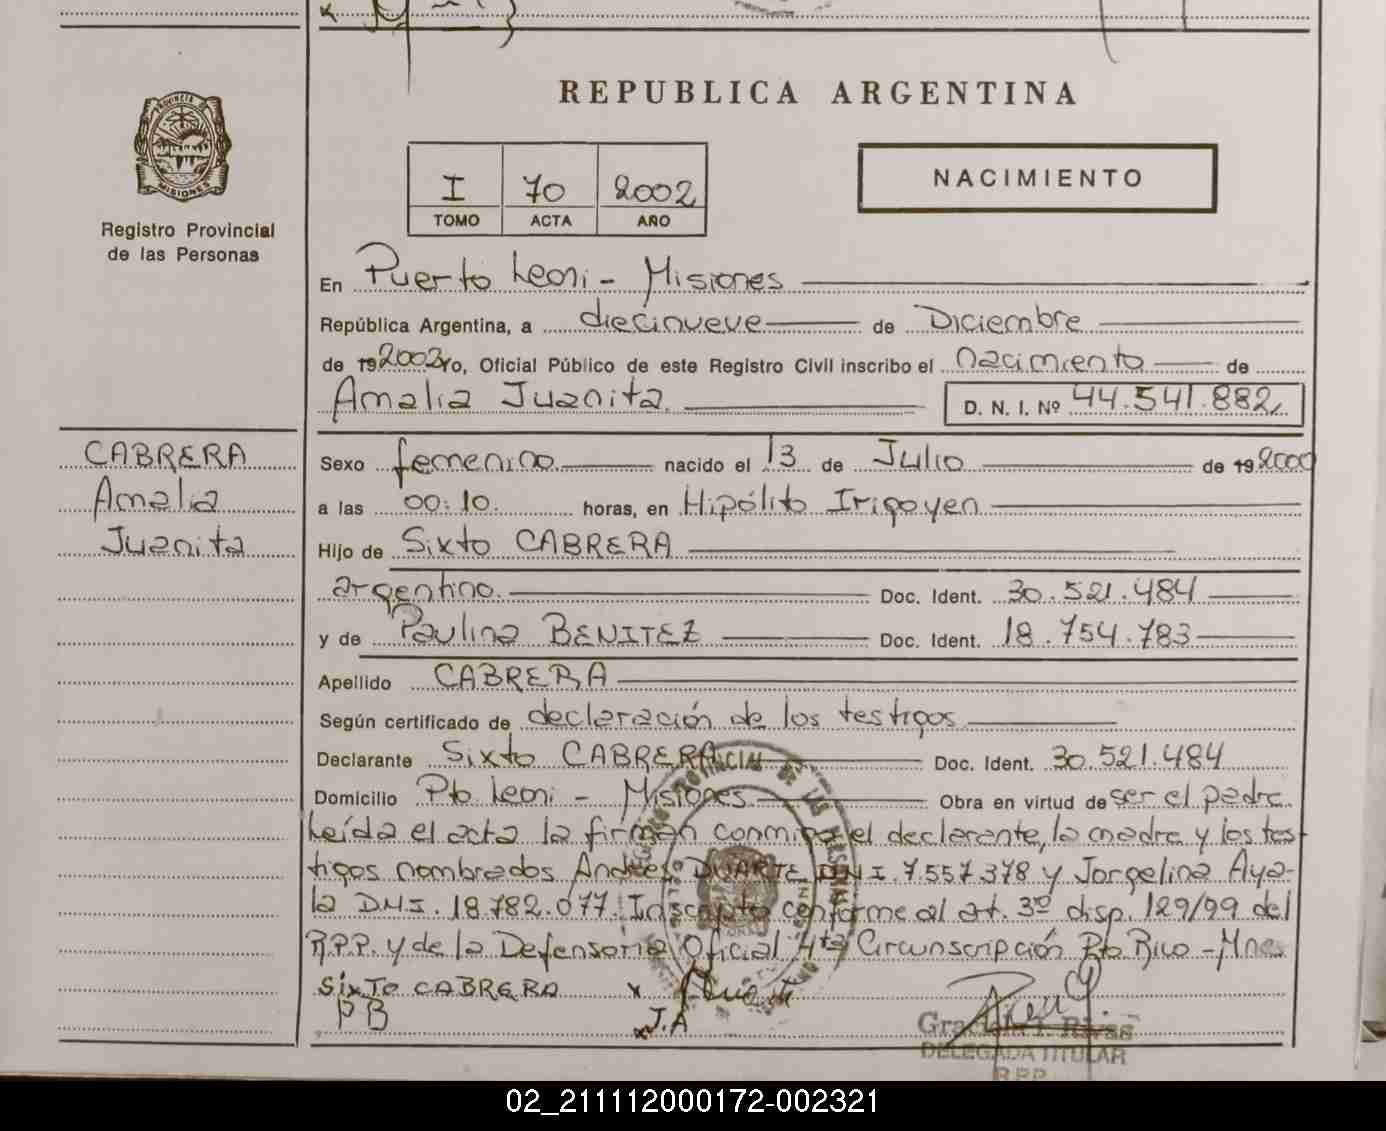 REPUBLICA ARGENTINA
PROVINCIA DE
MISIONES
Registro Provincial
de las Personas
I 70 2002
TOMO ACTA AÑO
NACIMIENTO
En Puerto Leoni - Misiones
República Argentina, a diecinueve de Diciembre
de 192003 Yo, Oficial Público de este Registro Civil inscribo el nacimiento de
Amalia Juanita D. N. I. Nº 44.541.882
CABRERA
Amalia
Juanita
Sexo femenino nacido el 13 de Julio de 19 2000
a las 00:10 horas, en Hipólito Irigoyen
Hijo de Sixto CABRERA
argentino Doc. Ident. 30.521.484
y de Paulina BENITEZ Doc. Ident. 18.754.783
Apellido CABRERA
Según certificado de declaración de los testigos
Declarante Sixto CABRERA Doc. Ident. 30.521.484
Domicilio Pto Leoni - Misiones Obra en virtud de ser el padre
Leída el acta la firman conmigo el declarante, la madre y los tes-
tigos nombrados Andres DUARTE DNI. 7.557.378 y Jorgelina Aya-
la DNI. 18.782.077. Inscripto conforme al art. 3º disp. 129/99 del
R.P.P. y de la Defensoria Oficial 4ta Circunscripción Pto Rico - Mnes
SIXTO CABRERA x
PB x J.A
DELEGADA TITULAR
R.P.P.
02_211112000172-002321